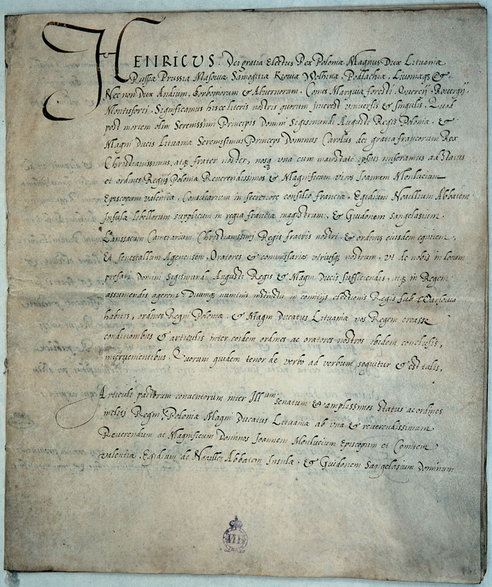 HENRICUS Dei gratia Electus Rex Poloniæ Magnus Dux Lituaniæ
Russiæ Prussiæ Masoviæ Samogitiæ Kioviæ Wolhiniæ Podlachiæ, Livoniæq3 &
Nec non Dux Andium, Borboniorum & Alvernorum. Comes Marchiæ Foresti, Quercii, Rovergii
Montisforti. Significamus hisce literis nostris quorum interest universis & singulis. Quod
post mortem olim Serenissimi Principis Domini Sigismundi Augusti Regis Poloniæ, &
Magni Ducis Lituaniæ Serenissimus Princeps Dominus Carolus dei gratia francorum Rex
Christianissimus, atq3 frater noster, nosq3 una cum mandatis ipsius miseramus ad Status
et ordines Regni Poloniæ Reverendissimos & Magnificum viros Joannem Monlucium
Episcopum valentiæ, Consiliarium in secretiore consilio franciæ, Egidium Noallium Abbatem
Insulæ libellorum supplicum in regia franciæ magistrum, & Guidonem Sangelasium
Lansacum Camerarium Christianissimi Regis fratris nostri, & ordinis eiusdem equitem,
Et senescallum Agenensem, Oratores & commissarios utriusq3 nostrum, ut de nobis in locum
præfati Domini Sigismundi Augusti Regis & Magni Ducis sufficiendis, atq3 in Regem
assumendis agerent. Dumq3 numinis instinctu in comitiis electionis Regis sub Warsovia
habitis, ordines Regni Poloniæ & Magni Ducatus Lituaniæ nos Regem creasse
conditionibus & articulis inter eosdem ordines ac oratores nostros ibidem conclusis,
intervenientibus Quorum quidem tenor de verbo ad verbum sequitur & est talis.
Articuli pactorum conventorum inter Illum Senatum & amplissimos Status ac ordines
inclyti Regni Poloniæ Magni Ducatus Lituaniæ ab una & reverendissimum
Reverendum ac Magnificum Dominos Joannem Monlucium Episcopum et Comitem
valentiæ, Egidium de Noailles Abbatem Insulæ, & Guidonem Sangelasium Dominum